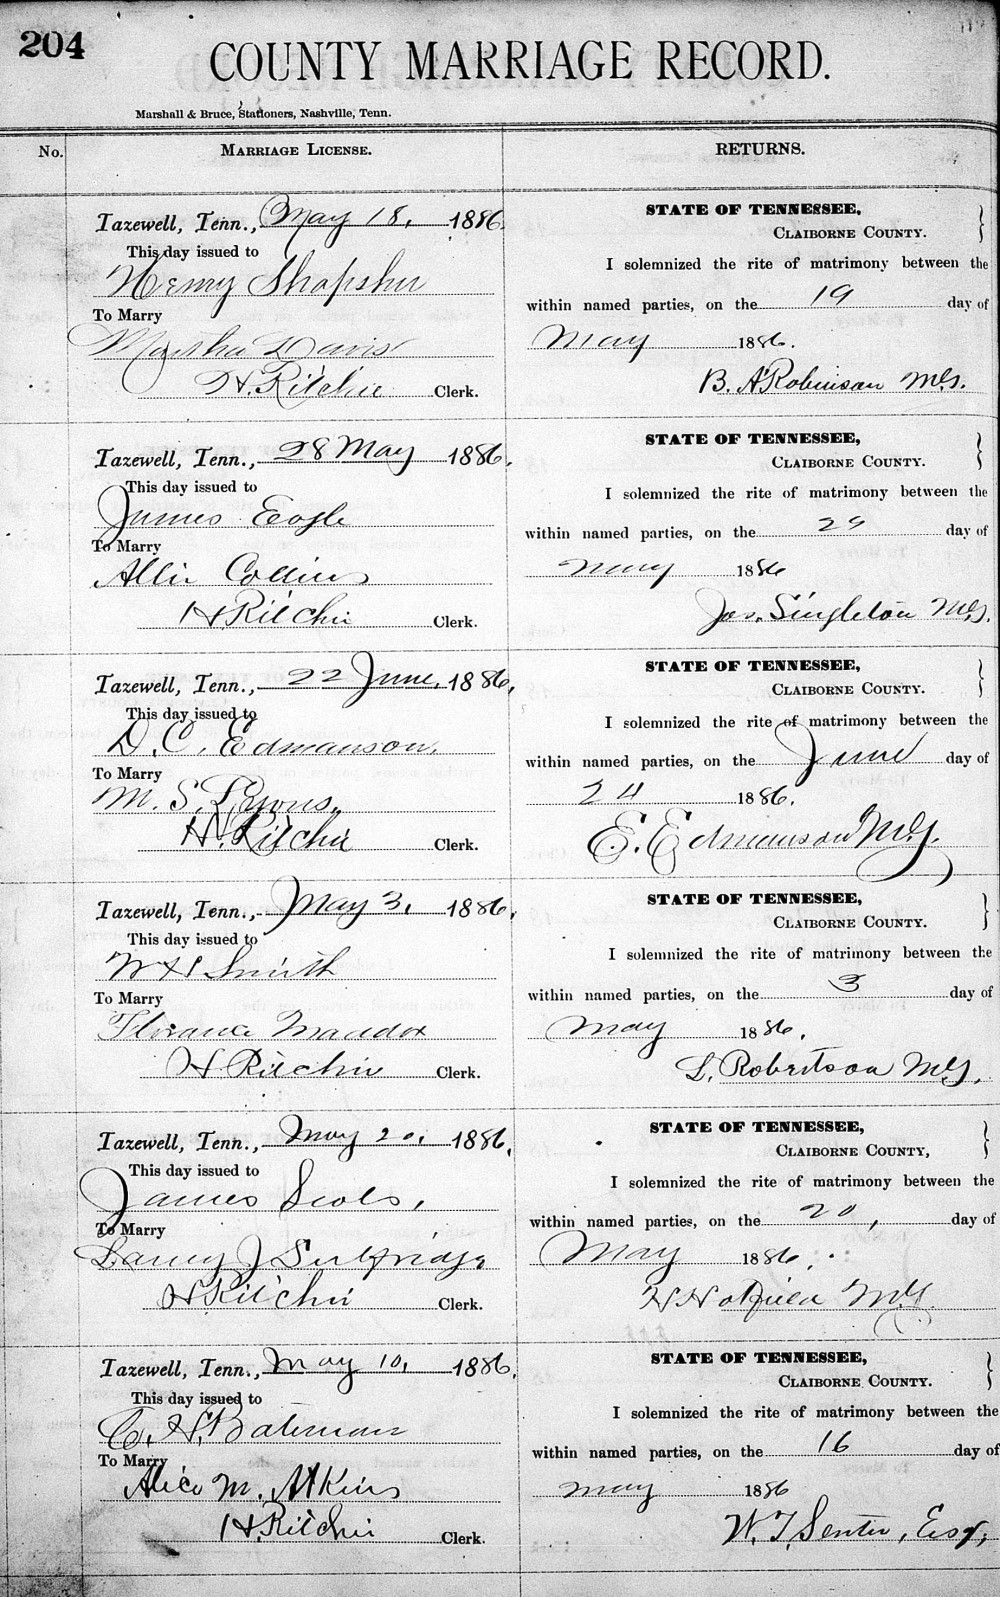 204
COUNTY MARRIAGE RECORD.
Marshall & Bruce, Stationers, Nashville, Tenn.
No. MARRIAGE LICENSE. RETURNS.
Tazewell, Tenn., May 18, 1886.
This day issued to
Henry Shofsher
To Marry
Martha Davis
H. Ritchie Clerk.
STATE OF TENNESSEE,
CLAIBORNE COUNTY. }
I solemnized the rite of matrimony between the
within named parties, on the 19 day of
May 1886.
B. A Robinson M.G.
Tazewell, Tenn., 28 May 1886.
This day issued to
James Eogle
To Marry
Allie Collins
H. Ritchie Clerk.
STATE OF TENNESSEE,
CLAIBORNE COUNTY. }
I solemnized the rite of matrimony between the
within named parties, on the 29 day of
May 1886
Jas. Singleton M.G.
Tazewell, Tenn., 22 June 1886.
This day issued to
D. C. Edmanson.
To Marry
M. S. Lyons.
H. Ritchie Clerk.
STATE OF TENNESSEE,
CLAIBORNE COUNTY. }
I solemnized the rite of matrimony between the
within named parties, on the June day of
24 1886.
E. Edmanson M.G.
Tazewell, Tenn., May 3, 1886.
This day issued to
W H Smith
To Marry
Florance Maddox
H. Ritchie Clerk.
STATE OF TENNESSEE,
CLAIBORNE COUNTY. }
I solemnized the rite of matrimony between the
within named parties, on the 3 day of
May 1886.
L. Robertson M.G.
Tazewell, Tenn., May 20, 1886.
This day issued to
James Seals,
To Marry
J Sulfridge
H Ritchie Clerk.
STATE OF TENNESSEE,
CLAIBORNE COUNTY, }
I solemnized the rite of matrimony between the
within named parties, on the 20, day of
May 1886.
H Hatfield M.G.
Tazewell, Tenn., May 10, 1886.
This day issued to
C. H. Bateman
To Marry
Alice M. Atkins
H. Ritchie Clerk.
STATE OF TENNESSEE,
CLAIBORNE COUNTY.
I solemnized the rite of matrimony between the
within named parties, on the 16 day of
May 1886
W. T. Senter, Esq,